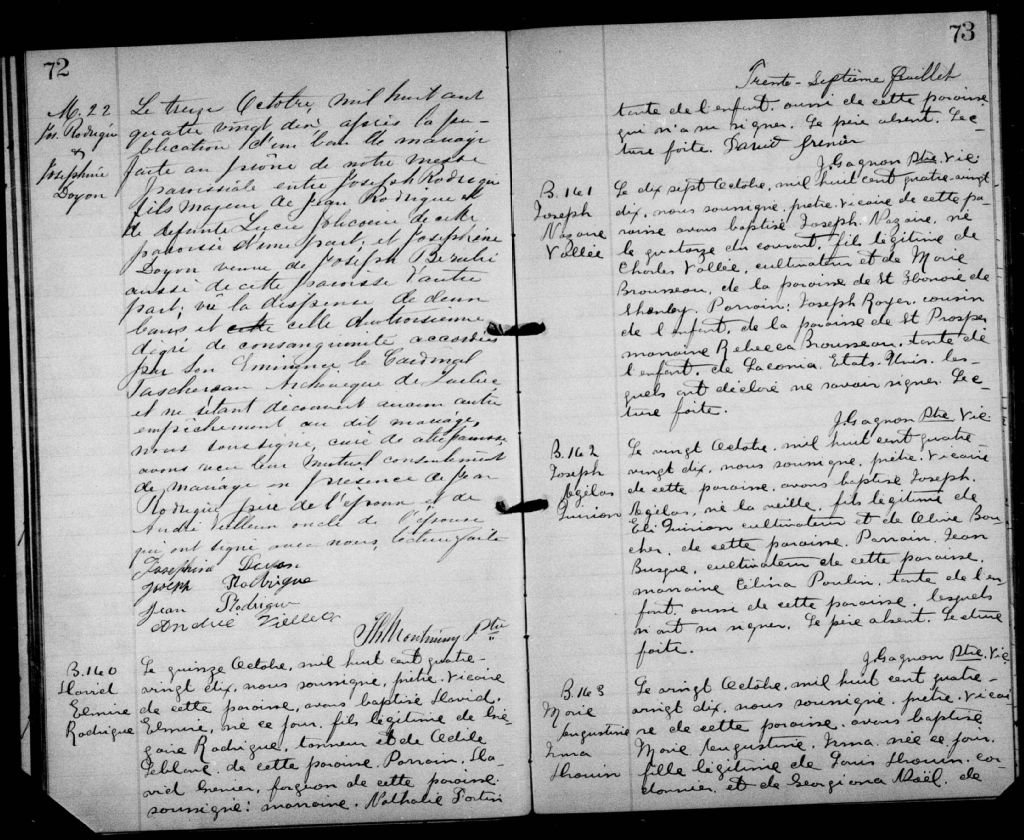 72
M. 22
Js. Rodrigue
&
Joséphine
Doyon
Le treize Octobre, mil huit cent
quatre vingt dix, après la pu-
blication d'un ban de mariage
faite au prône de notre messe
paroissiale entre Joseph Rodrigue
fils majeur de Jean Rodrigue et
de defunte Lucie de cette
paroisse d'une part, et Joséphine
Doyon veuve de Joseph
aussi de cette paroisse d'autre
part; vu la dispense de deux
bans et celle du troisième
dégré de consanguinité accordées
par Son Eminence le Cardinal
Taschereau Archevêque de Québec
et ne s'étant découvert aucun autre
empêchement au dit mariage,
nous soussigné, curé de cette paroisse
avons reçu leur mutuel consentement
de mariage en présence de Jean
Rodrigue père de l'époux, et de
André Veilleux oncle de l'épouse
qui ont signé avec nous, lecture faite
Josephine Doyon
Joseph Rodrigue
Jean Rodrigue
André
Montminy Ptre
B. 160
David
Elmire
Rodrigue
Le quinze Octobre, mil huit cent quatre-
vingt dix, nous soussigné, prêtre, vicaire
de cette paroisse, avons baptisé David,
Elmire, né ce jour, fils légitime de Gré-
goire Rodrigue, tanneur et de Odile
Leblanc, de cette paroisse. Parrain, Da-
vid Grenier, forgeron de cette paroisse
soussigné: marraine, Nathalie Fortin
73
Trente-Septième Feuillet
tante de l'enfant, aussi de cette paroisse
qui n'a su signer. Le père absent. Lec-
ture faite. David Grenier
J. Gagnon Ptre. Vic.
B. 161
Joseph
Nazaire
Vallée
Le dix sept Octobre, mil huit cent quatre-vingt
dix, nous soussigné, prêtre, vicaire de cette pa-
roisse avons baptisé Joseph, Nazaire, né
le quatorze du courant, fils légitime de
Charles Vallée, cultivateur et de Marie
Brousseau, de la paroisse de St Honoré de
Shenley. Parrain: Joseph Royer, cousin
de l'enfant, de la paroisse de St Prosper
marraine Rebecca Brousseau, tante de
l'enfant, de Laconia, Etats-Unis, les-
quels ont déclaré ne savoir signer. Lec-
ture faite.
J. Gagnon Ptre. Vic.
B. 162
Joseph
Agilas
Quirion
Le vingt Octobre, mil huit cent quatre-
vingt dix, nous soussigné, prêtre, vicaire
de cette paroisse, avons baptisé Joseph,
Agilas, né la veille, fils légitime de
Eli Quirion cultivateur et de Olive Bou-
cher, de cette paroisse. Parrain, Jean
Busque, cultivateur de cette paroisse,
marraine Célina Poulin, tante de l'en-
fant, aussi de cette paroisse, lesquels
n'ont su signer. Le père absent. Lecture
faite.
J. Gagnon Ptre. Vic.
B. 163
Marie
Augustine
Irma
Drouin
Le vingt Octobre, mil huit cent quatre-
vingt dix, nous soussigné, prêtre, vicai-
re de cette paroisse, avons baptisé
Marie Augustine, Irma, née ce jour,
fille légitime de Louis Drouin, cor-
donnier, et de Georgiana Noël, de